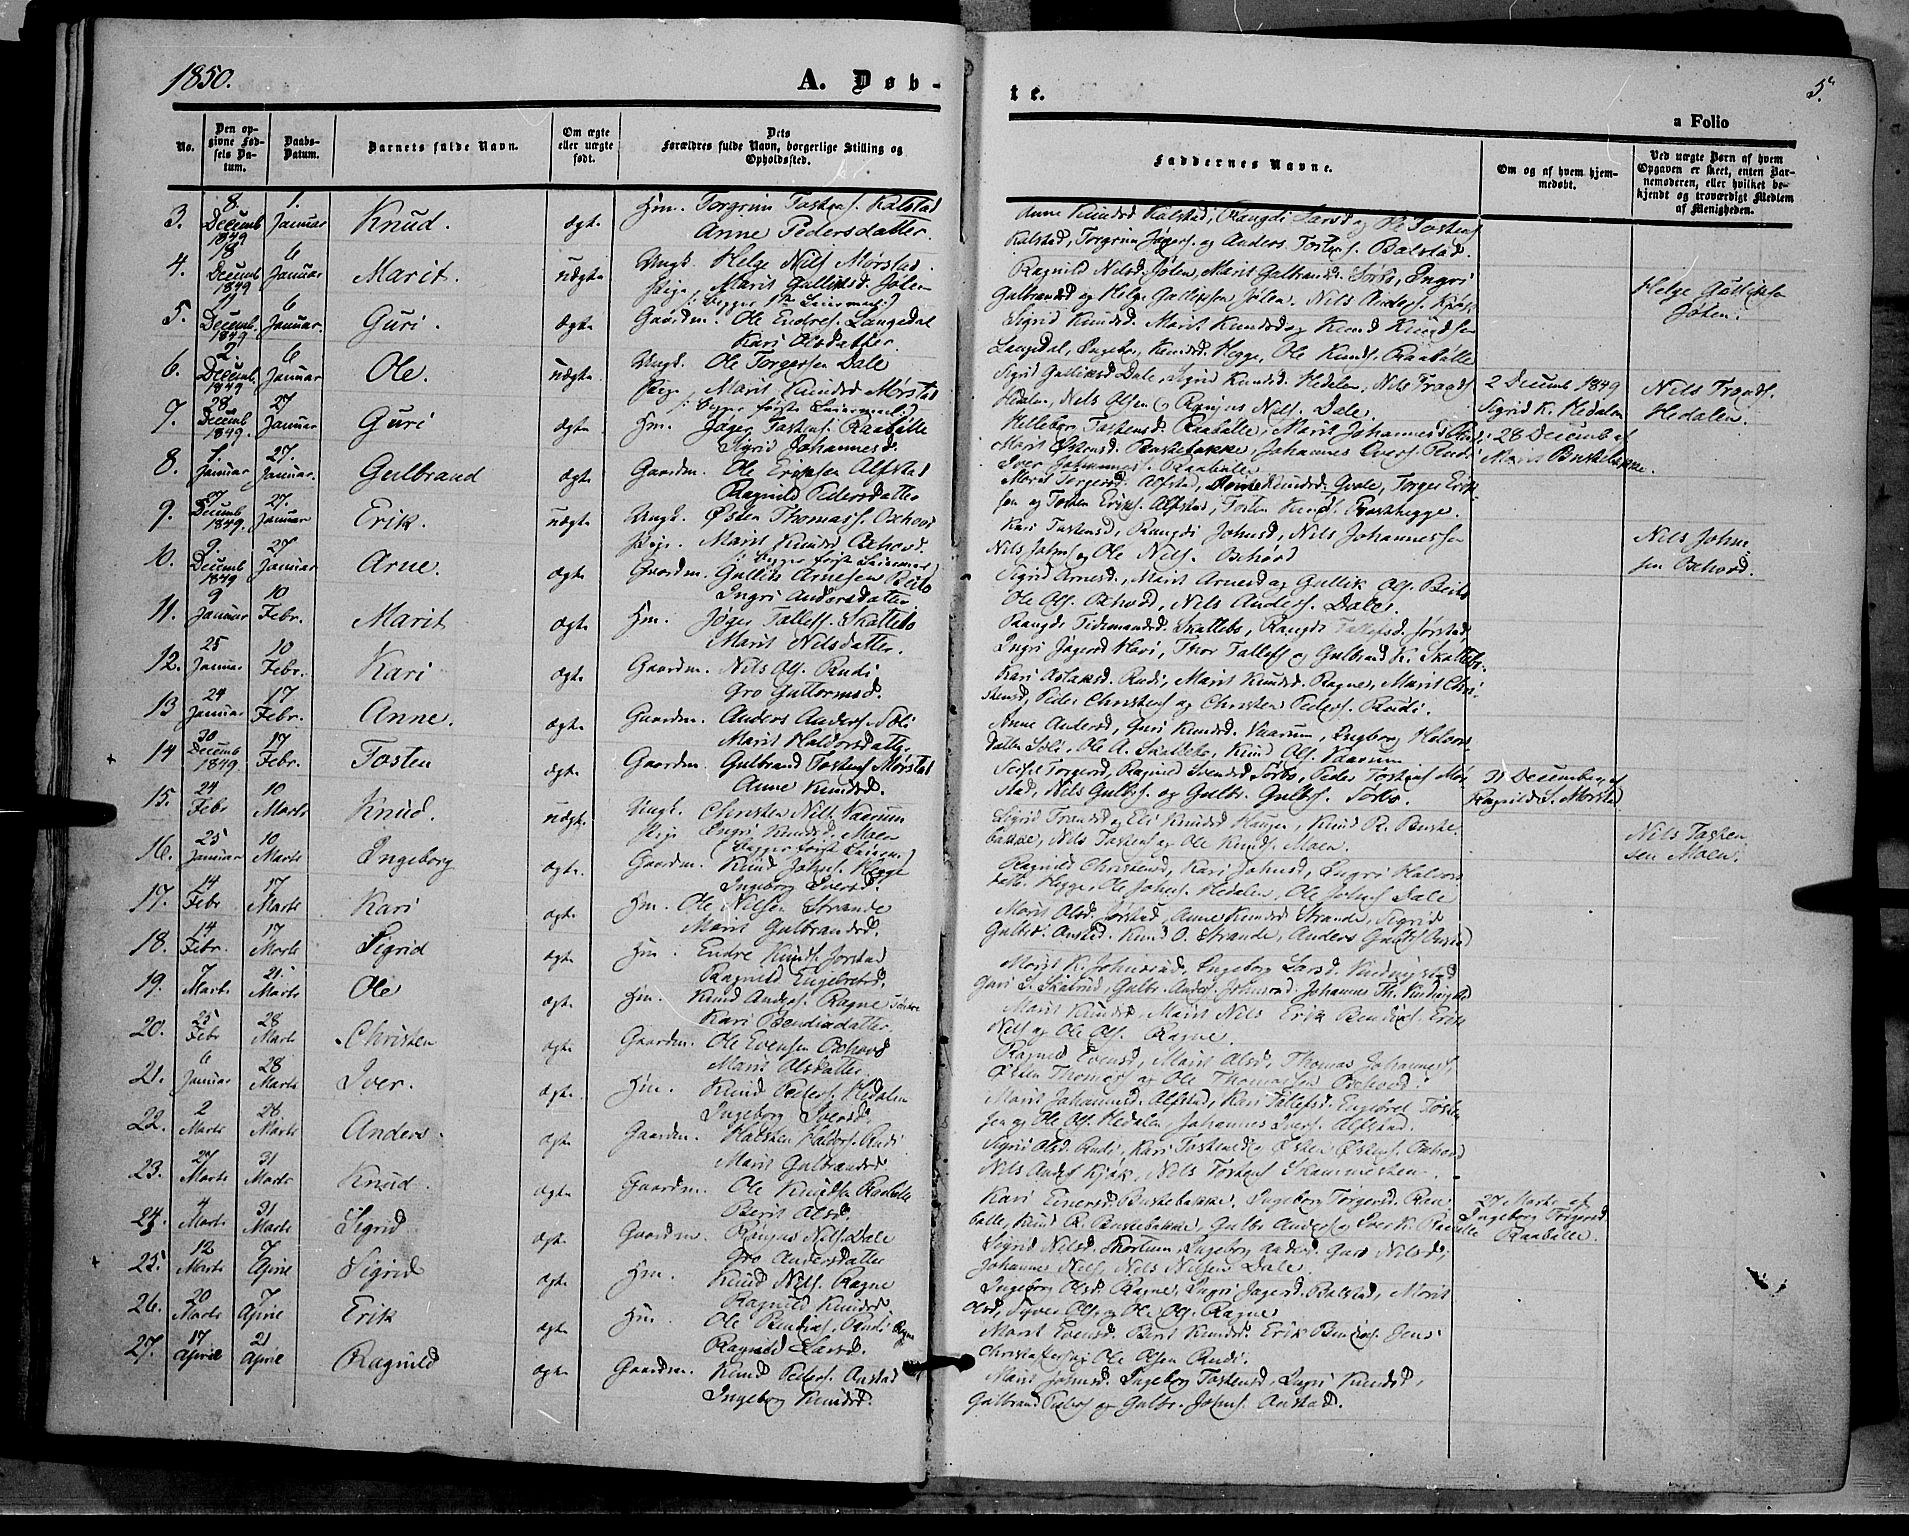 1850.
A. Døb-
te.
5.
a Folio
No.
Den op-
givne Fød-
sels Da-
tum.
Daabs-
Datum.
Barnets fulde Navn.
Om ægte
eller uægte
født.
Dets
Forældres fulde Navn, borgerlige Stilling og
Opholdssted.
Faddernes Navne.
Om og af hvem hjem-
medøbt.
Ved uægte Børn af hvem
Opgaven er skeet, enten Bar-
nemoderen, eller hvilket be-
kjendt og troværdigt Medlem
af Menigheden.
3. 8 Decemb 1849 1. Januar Knud. ægte Hm. Torgrim Tostens. Kalstad
Anne Pedersdatter.
Anne Knudsd Kalstad, Rangdi Larsd og Ole Tostens
Kalstad, Torgrim Jøgers. og Anders Tostens. Balstad.
4. 18 Decemb 1849 6 Januar Marit. uægte Ungk. Helge Nils Mørstad.
Pige Marit Gulliksd. Jølen
(: begges 1ste Leiermaal :)
Ragnild Nilsd. Jølen, Marit Gulbransd. Sørbø, Ingri
Gulbransd og Helge Gulliksen Jølen, Nils Anders. Kjøs
Helge Gulliksen
Jølen.
5. 11 Decemb. 1849 6 Januar. Guri. ægte Gaardm. Ole Endres. Langedal
Kari Olsdatter.
Sigrid Knudsd. Marit Knudsd og Knud Knudsen
Langedal, Ingebor Knudsd. Hegge, Ole Knuds. Raabølle
6. 2. Decemb. 1849 6 Januar Ole. uægte. Ungk. Ole Torgersen Dale
Pige Marit Knudsd Mørstad
(: begges første Leiermaal :)
Sigrid Gulliksd Dale, Sigrid Knudsd. Hedalen, Nils Traads
Hedalen, Nils Olsen og Rangas Nils. Dale.
2 Decemb 1849
Sigrid K. Hedalen
Nils Traads.
Hedalen.
7. 28 Decemb 1849. 27 Januar Guri ægte Hm. Jøger Tostens. Raabølle
Sigrid Johannesd.
28 Decemb af
Marit Buskebakke.
Iver Johannes. Raabølle
8. 1. Januar 27. Januar. Gulbrand ægte Gaardm. Ole Eriksen Alfstad
Ragnild Pedersdatter
Marit Torgersd. Alfstad, Anne Knudsd. Qvale, Torger Erik
sen og Tosten Eriks. Alfstad, Tosten Knuds.
9. 7 Decemb 1849. 27. Januar Erik. uægte Ungk. Østen Thomass. Oxhovd
Pige. Marit Knudsd Oxhovd.
Kari Tostensd, Rangdi Johnsd, Nils Johannessen
Nils Johns og Ole Nils. Oxhovd
Nils John-
sen Oxhovd.
10. 9. Decemb 1849 27 Januar Arne. ægte Gaardm. Gullik Arnesen Beito
Ingri Andersdatter
Sigrid Arnesd., Marit Arnesd og Gullik Ols. Beito
Ole Ols. Oxhovd, Nils Anders. Dale.
11. 9 Januar 10 Febr. Marit ægte Hm. Jøger Tallefs. Skattebo
Marit Nilsdatter.
Rangdi Tidemansd. Skattebo, Rangdi Tallefsd. Jørstad
Ingri Jøgersd Kari, Thor Tallefs og Gulbrand K. Skattebo.
12. 25 Januar 10 Febr. Kari ægte. Gaardm. Nils Ols. Rudi
Gro Guttormsd.
Kari Aslaksd. Rudi, Marit Knudsd. Ragne, Marit Chri-
stensd, Peder Christens og Christen Peders. Rudi.
13 24 Januar 17 Febr. Anne. ægte Gaardm. Anders Anders. Soli
Marit Haldorsdatte.
Anne Andersd, Guri Knudsd. Vaarum, Ingborg Holvors-
datter Soli, Ole A. Skattebo, Knud Ols. Vaarum
14 30 Decemb 1849. 17 Febr. Tosten ægte Gaardm. Gulbrand Tostens Mørstad
Anne Knudsd.
Torgersd, Ragnild Svendsd Sørbø, Peder Tostens Mør
stad, Nils Gulbs. og Gulbr. Gulbs. Sørbø.
31 December af
Ragnild S. Mørstad
15. 24 Febr 10 Marts Knud. uægte. Ungk. Christen Nils. Vaarum
Pige Ingri Knudsd. Moen
(begges første Leierm.)
Sigrid Trondsd og Eli Knudsd Haugen, Knud R. Buske-
bakke, Nils Tostens og Ole Knuds. Moen.
Nils Tosten-
sen Moen.
16. 25 Januar 10. Marts Ingeborg ægte. Gaardm. Knud Johns. Hegge
Ingeborg Iversd.
Ragnild Christensd, Kari Johnsd, Ingri Halvors-
datter Hegge, Ole Johns. Hedalen, Ole Johns Dale
17. 14 Febr 17 Marts Kari ægte Hm. Ole Nilsen Strande
Marit Gulbrandsd.
Marit Olsd. Jørstad, Anne Knudsd Strande, Sigrid
Gulbsd. Anstad. Knud O. Strande, Anders Gulbs
18. 14 Febr. 17 Marts Sigrid ægte Hm. Endre Knuds. Jorstad
Ragnild Engebretsd.
19. 7 Marts 21. Marts Ole ægte Hm. Knud Anders. Ragne
Kari Bendixdatter
Marit Knudsd, Marit Nils Erik Bendixs. Erik
Nils og Ole Ols. Ragne.
20. 25 Febr 28 Marts Christen ægte Gaardm. Ole Evensen Oxhovd
Marit Olsdatter
Ragnild Evensd, Marit Olsd, Thomas Johannes,
Østen Thomass og Ole Thomassen Oxhovd.
21. 6 Januar 28 Marts Iver. ægte Hm. Knud Peders. Hedalen
Ingeborg Iversd.
Marit Johannesd. Alfstad, Kari Tallefsd. Engebret Tosten
sen og Ole Ols. Hedalen, Johannes Ivers. Alfstad.
22. 2 Marts 28. Marts Anders. ægte Gaardm. Halsten Haldors. Rudi
Marit Gulbrandsd
Sigrid Olsd Rudi, Kari Tostensd og Østen Østens. Oxhovd
Nils Anders Kjøk, Nils Tostens
23. 27 Marts 31 Marts Knud. ægte Gaardm. Ole Knudsen Raabøle
Berit Olsd.
Kari Einersd. Buskebakke, Ingeborg Torgersd. Raa-
bølle, Knud R. Buskebakke, Gulbr Anders og Iver K. Raabølle
27 Marts af
Ingeborg Torgersd.
Raabølle.
24. 4 Marts 31 Marts Sigrid ægte Gaardm Rangas Nils. Dale
Gro Andersdatter
Sigrid Nilsd. Ingeborg Andersd. Guri Nilsd,
Johannes Nils, Nils Nilsen Dale.
25. 12 Marts 7 Aprile Sigrid ægte Hm. Knud Nils. Ragne
Ragnild Knudsd
Ingeborg Olsd. Ragne, Ingri Jøgersd. Balstad, Marit
Olsd, Syver Ols og Ole Ols. Ragne
26. 20 Marts 7 Aprile Erik ægte Hm. Ole Bendixs. Rudi Ragne
Ragnild Larsd.
Marit Evensd. Berit Knudsd. Erik Bendixs. Jens
Christophers og Ole Olsen Rudi.
27. 17 April 21 Aprile Ragnild ægte Gaardm. Knud Peders. Anstad
Ingeborg Knudsd.
Marit Johnsd. Ingeborg Tostensd, Ingri Knudsd,
Gulbrand Peders og Gulbr. Johns. Anstad.